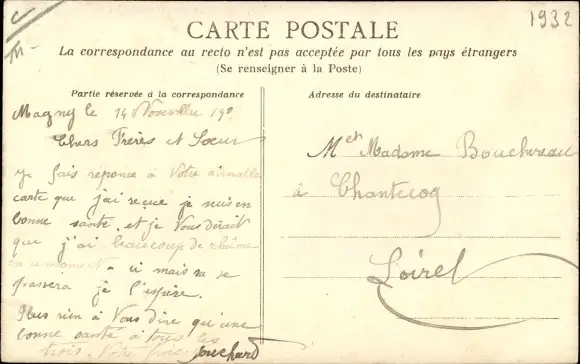 1932
CARTE POSTALE
La correspondance au recto n'est pas acceptée par tous les pays étrangers
(Se renseigner à la Poste)
Partie réservée à la correspondance
Adresse du destinataire
Magny le 14 Novembre 190
Chers Frères et Sœur
Je fais réponse à Votre aimable
carte que j'ai reçue je suis en
bonne santé. et je Vous dirait
que j'ai beaucoup de rhume
en ce moment - ci mais sa se
passera je l'espère.
Plus rien à Vous dire qu'une
bonne santé à tous les
trois. Votre frère Bouchard
M et Madame Bouchereau
à Chantecoq
Loiret